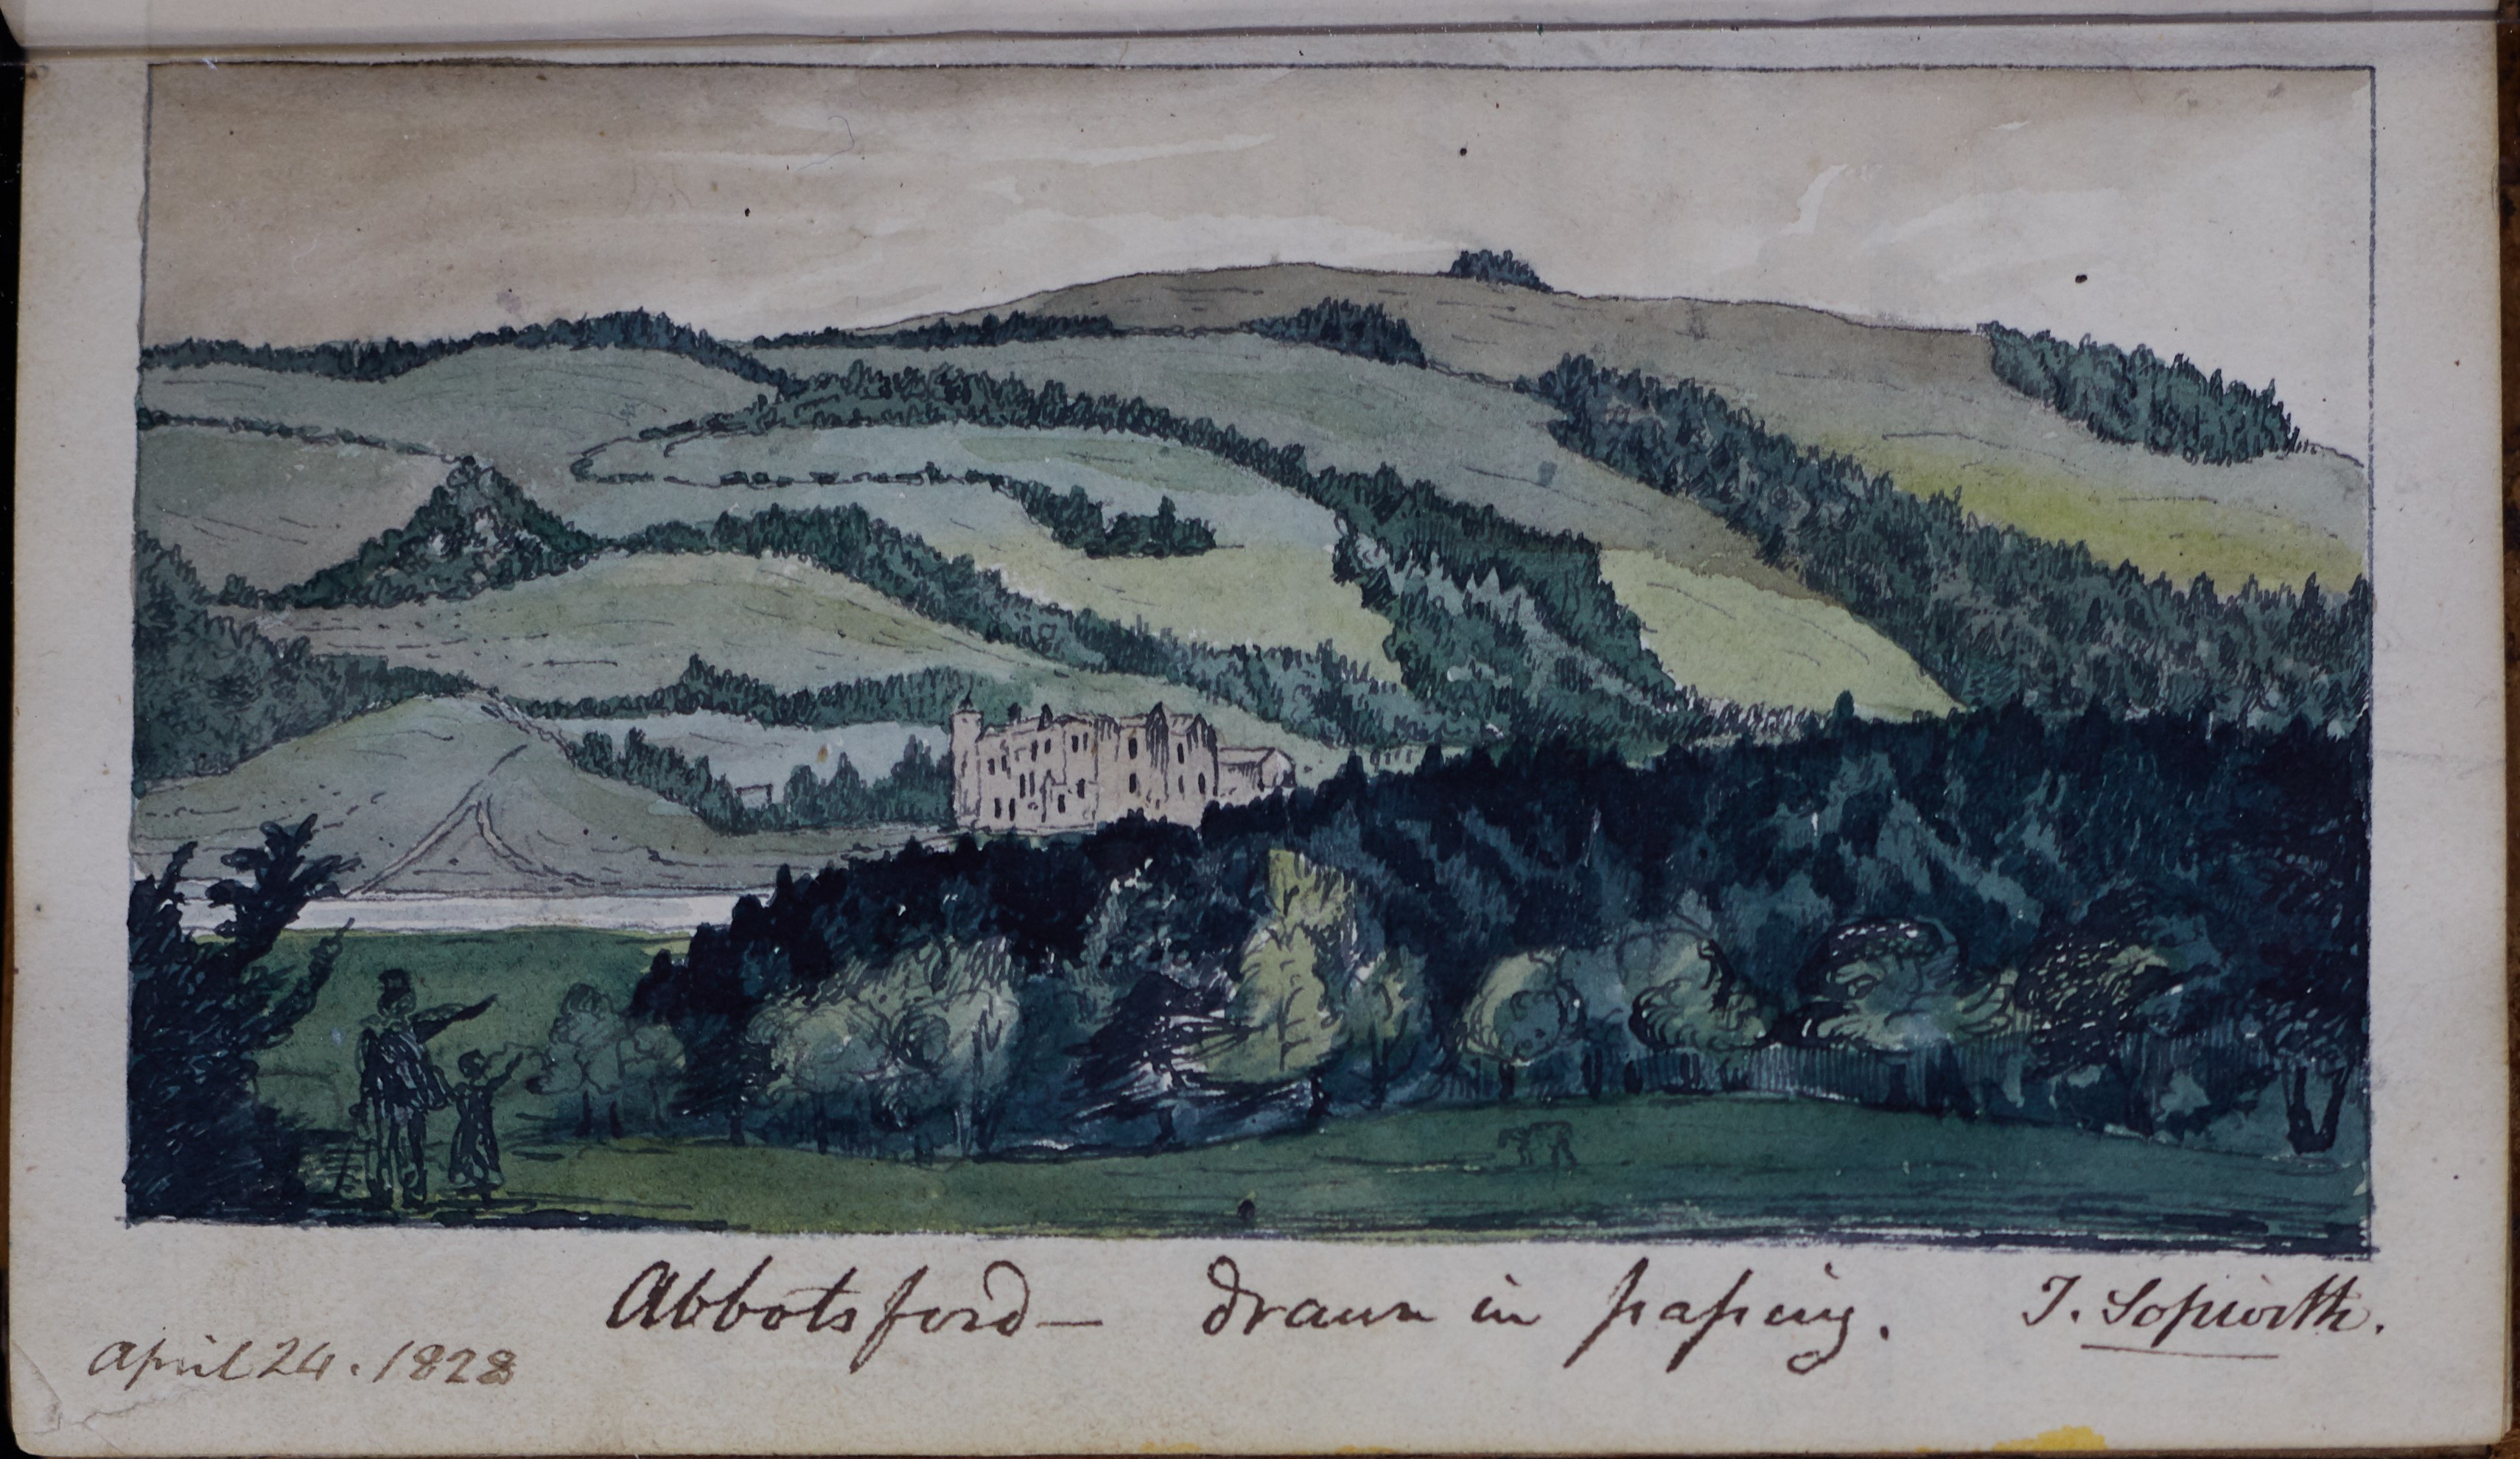 Abbotsford — drawn in paſsing. T. Sopwith.
April 24. 1828